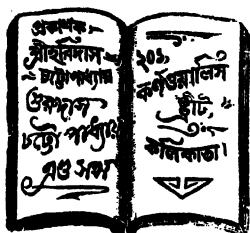 প্রকাশক,
শ্রীহরিদাস
চট্টোপাধ্যায়
গুরুদাস
চট্টোপাধ্যায়
এণ্ড সন্স
২০১,
কর্ণওয়ালিস
ষ্ট্রীট,
কলিকাতা।